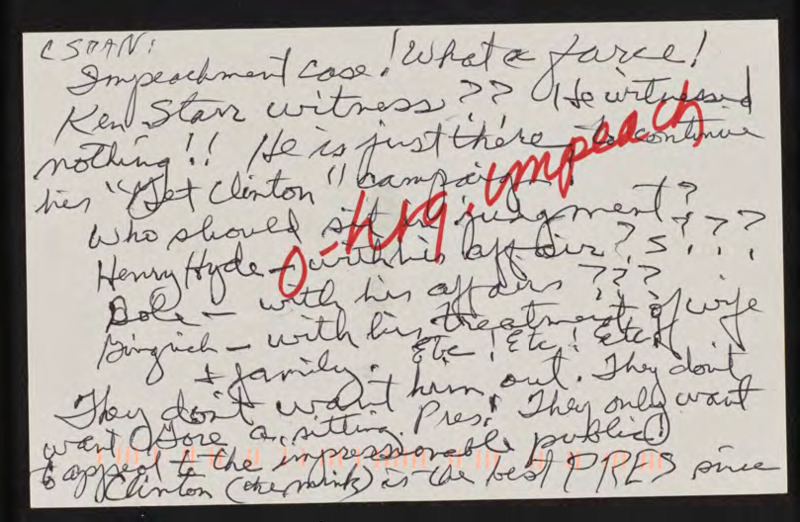 CSPAN:
Impeachment case! What a farce!
Ken Starr witness?? He witnessed
nothing!! He is just there to continue
his "Get Clinton" campaign!
Who should sit in judgment?
Henry Hyde – with his affair? S? ? ?
Dole – with his affairs ???
Gingrich – with his treatment of wife
& family. Etc! Etc! Etc!
They don't want him out. They don't
want Gore as sitting Pres! They only want
to appeal to the impressionable public!
Clinton (the mink) is the best PRES since
O-hrg, impeach